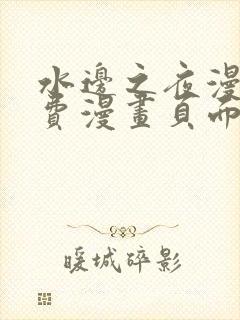 水邊之夜漫
費漫畫頁而
暖城碎影